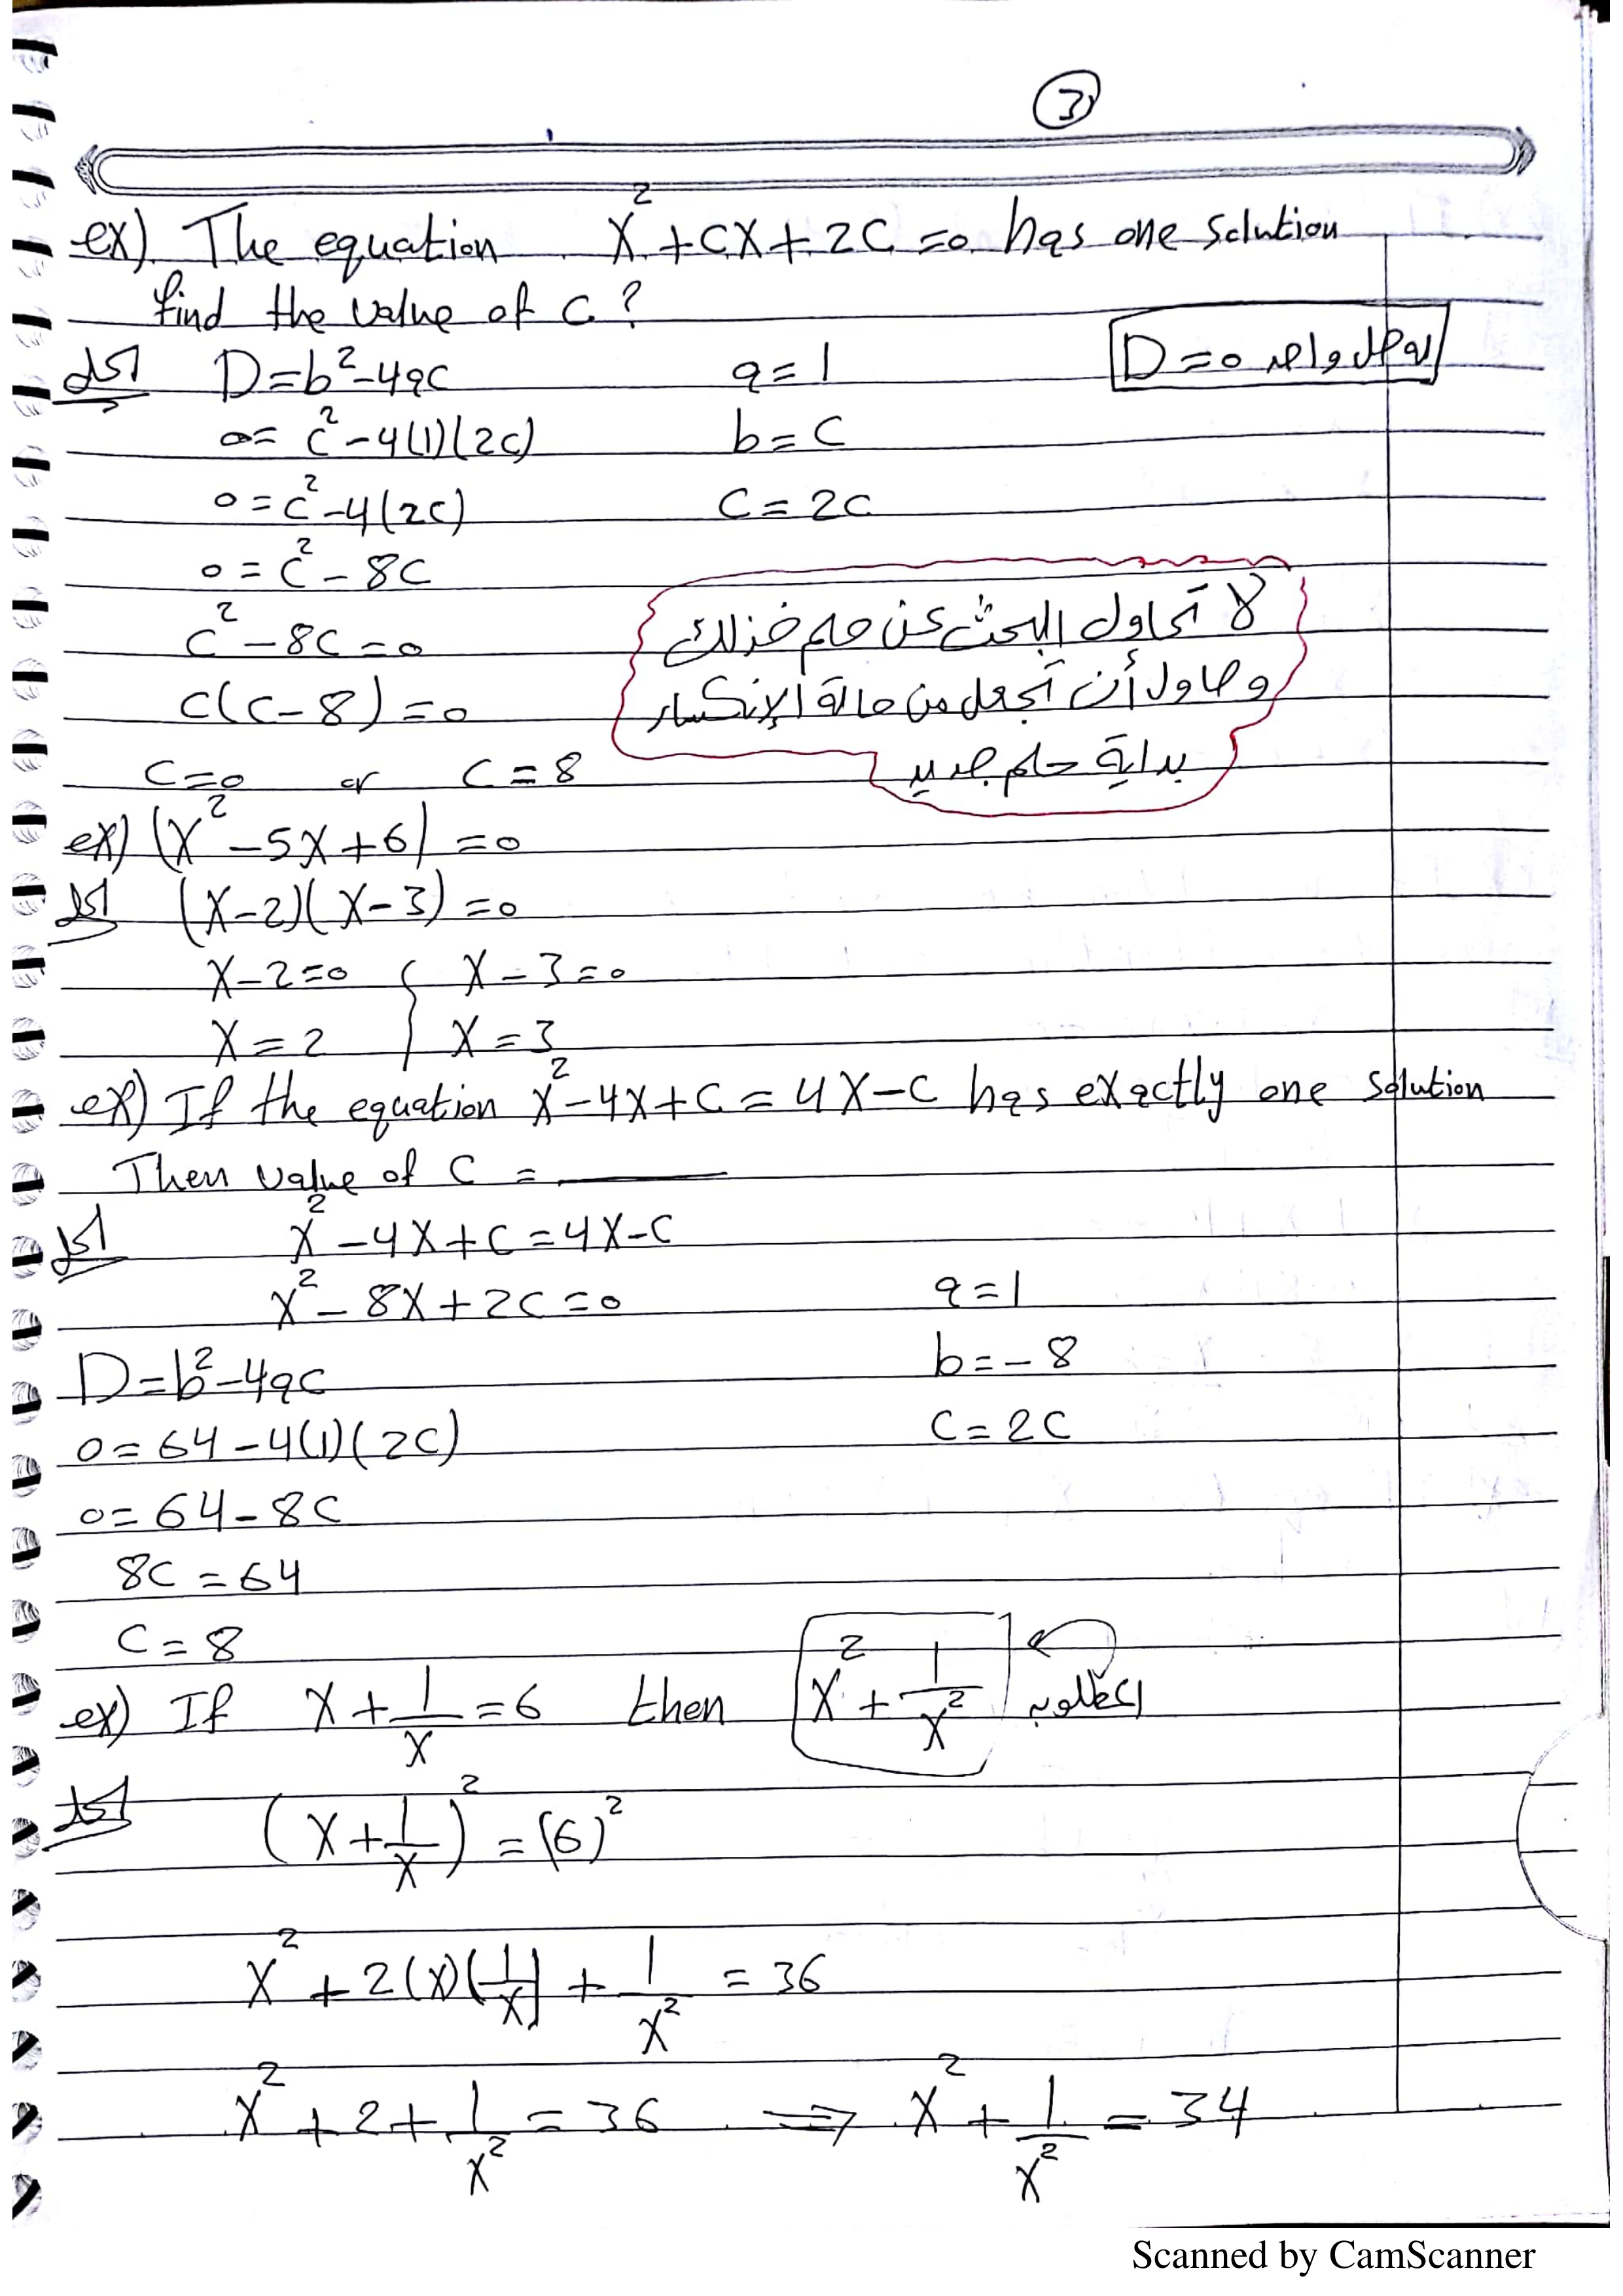 3
ex) The equation x² + cx + 2c = 0 has one solution
find the value of c?
الحل D = b² - 4ac a = 1 له حل واحد D = 0
0 = c² - 4(1)(2c) b = c
0 = c² - 4(2c) c = 2c
0 = c² - 8c
c² - 8c = 0
c(c - 8) = 0
c = 0 or c = 8
لا تحاول البحث عن حلم خذلك
وحاول أن تجعل من حالة الإنكسار
بداية حلم جديد
ex) (x² - 5x + 6) = 0
الحل (x - 2)(x - 3) = 0
x - 2 = 0 x - 3 = 0
x = 2 x = 3
ex) If the equation x² - 4x + c = 4x - c has exactly one solution
Then value of c = ____
الحل x² - 4x + c = 4x - c
x² - 8x + 2c = 0 a = 1
D = b² - 4ac b = -8
0 = 64 - 4(1)(2c) c = 2c
0 = 64 - 8c
8c = 64
c = 8
ex) If x + 1/x = 6 then x² + 1/x² المطلوب
الحل (x + 1/x)² = (6)²
x² + 2(x)(1/x) + 1/x² = 36
x² + 2 + 1/x² = 36 ⇒ x² + 1/x² = 34
Scanned by CamScanner